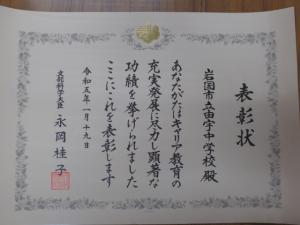 表彰状
岩国市立由宇中学校殿
あなたがたはキャリア教育の
充実発展に尽力し顕著な
功績を挙げられました
ここにこれを表彰します
令和五年一月十九日
文部科学大臣 永岡桂子